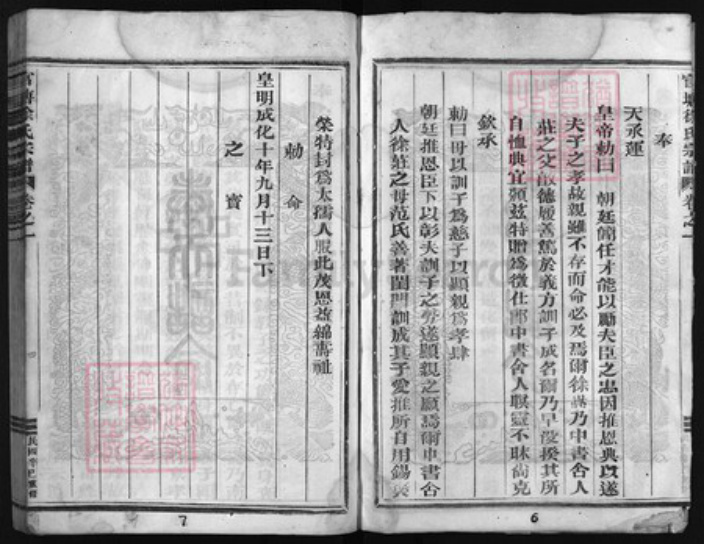 奉
天承運
皇帝勅曰 朝廷簡任才能以勵夫臣之忠因推恩典以遂
夫子之孝故親雖不存而命必及焉爾徐 乃中書舍人
莊之父 德履善篤於義方訓子成名爾乃早没揆其所
自恤典宜頒茲特贈爲徵仕郎中書舍人 靈不昧尚克
欽承
勅曰母以訓子爲慈子以顯親爲孝肆
朝廷推恩臣下以彰夫訓子之勞遂顯親之願焉爾中書舍
人徐莊之母范氏善著閨門訓成其子愛推所自用錫
6
榮特封爲太孺人服此茂恩益綿壽祉
勅 命
皇明成化十年九月十三日下
之 寶
7
官塘徐氏宗譜 卷之一